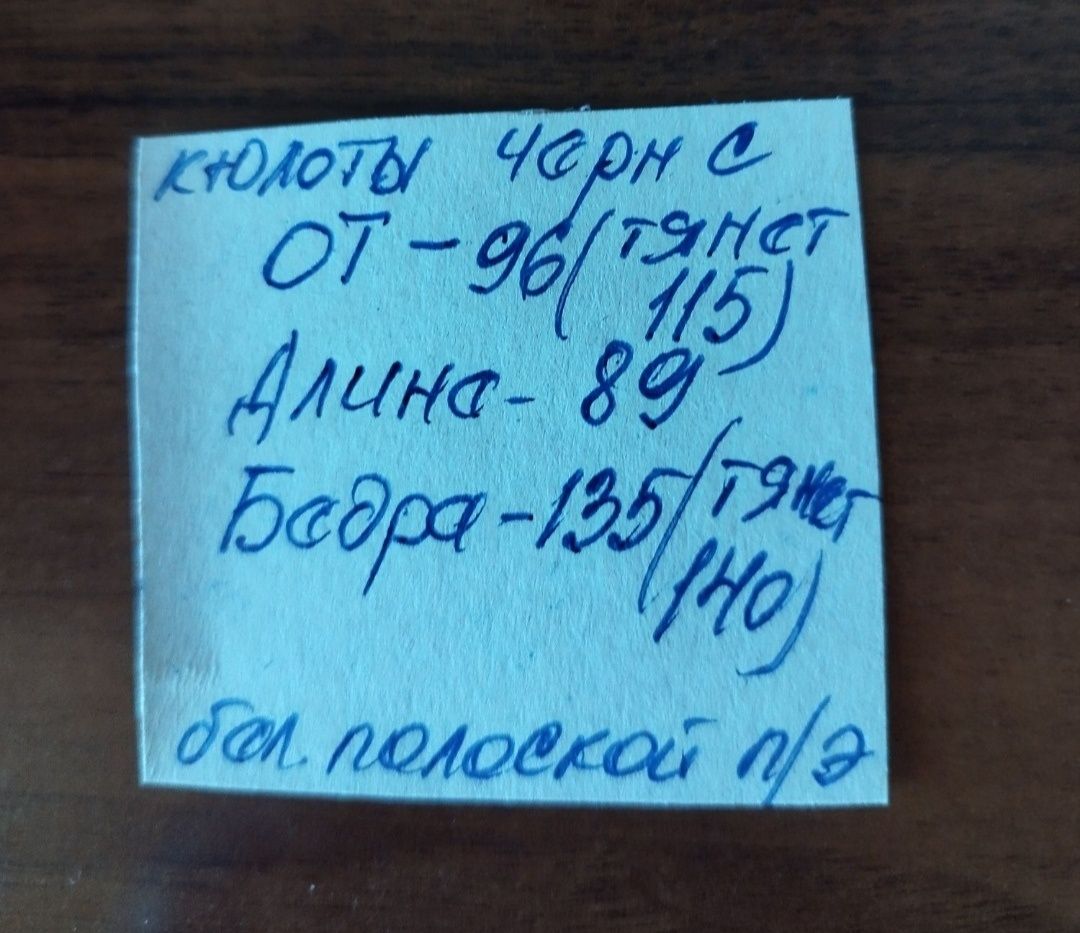 кюлоты черн с
ОТ - 96 (тянет
115)
Длина - 89
Бедра - 135 (тянет
140)
бел. полоской п/э